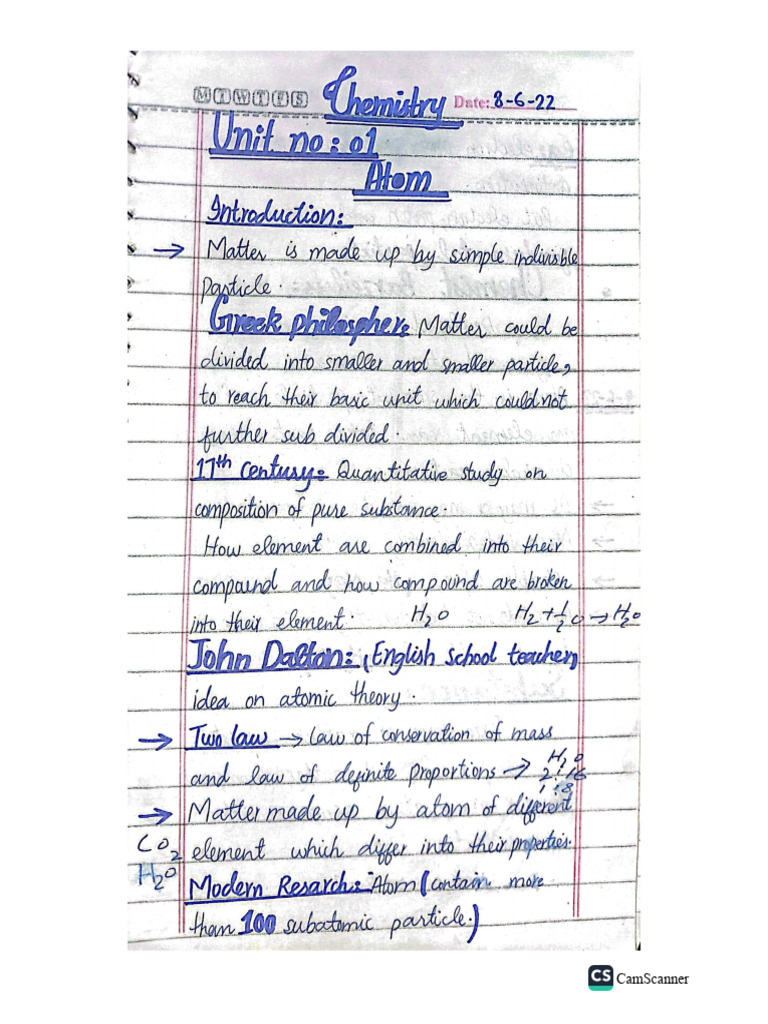 M T W T F S Chemistry Date: 8-6-22
Unit no: 01
Atom
Introduction:
→ Matter is made up by simple indivisble
particle.
Greek philospher: Matter could be
divided into smaller and smaller particle,
to reach their basic unit which could not
further sub divided.
17th Century: Quantitative study on
composition of pure substance.
How element are combined into their
compound and how compound are broken
into their element. H2O H2 + 1/2 O → H2O
John Dalton: (English school teacher)
idea on atomic theory.
→ Two law → Law of conservation of mass
H2O
and law of definite proportions → 2:16
1:8
→ Matter made up by atom of different
CO2 element which differ into their properties.
H2O
Modern Resarch: Atom (contain more
than 100 subatomic particle.)
CS CamScanner